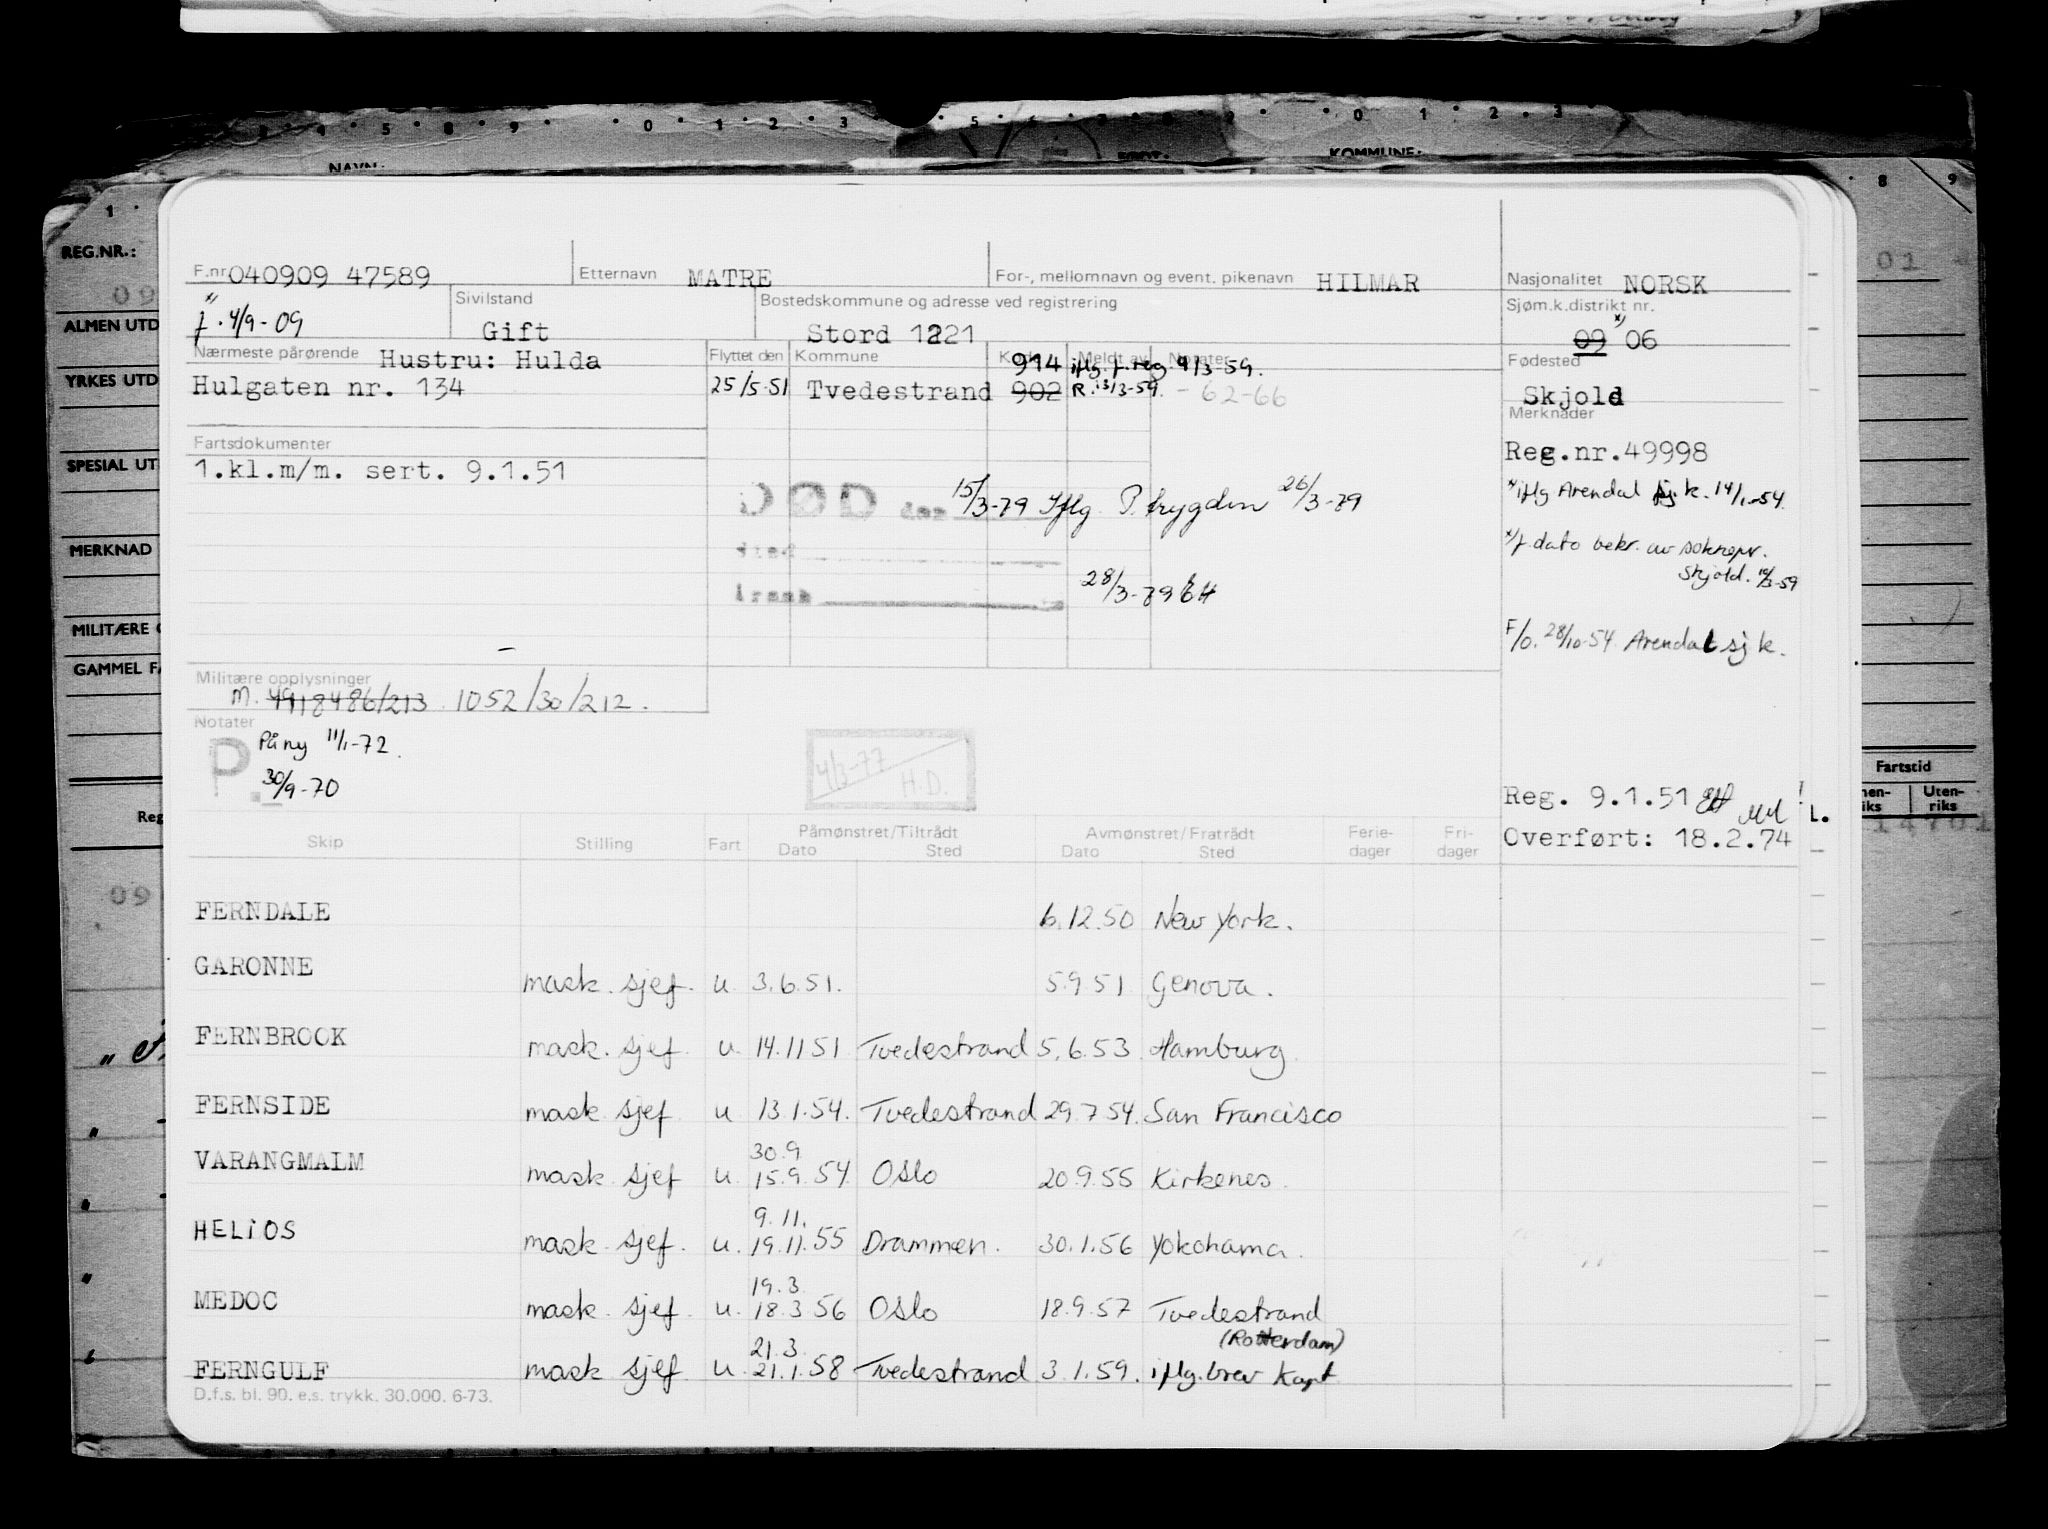 NAVN:
KOMMUNE:
REG.NR.:
ALMEN UTD
YRKES UTD
SPESIAL UT
MERKNAD
MILITÆRE
GAMMEL FA
Reg
Fartstid
Uten-
riks
F.nr. 040909 47589 Etternavn MATRE For-, mellomnavn og event. pikenavn HILMAR Nasjonalitet NORSK
x) f. 4/9-09 Sivilstand Gift Bostedskommune og adresse ved registrering Stord 1221 Sjøm.k.distrikt nr. 09 x) 06
Nærmeste pårørende Hustru: Hulda Flyttet den Kommune Kode Meldt av Notater Fødested
Hulgaten nr. 134 25/5-51 Tvedestrand 902 914 iflg. f.reg. 9/3-59. R. 13/3-59. - 62-66 Skjold
Fartsdokumenter Merknader
1.kl.m/m. sert. 9.1.51 Reg.nr.49998
x) iflg Arendal sj.k. 14/1-54.
DØD den 15/3-79 Iflg P. trygden 26/3-79
x) f.dato bekr. av soknepr.
Skjold. 10/3-59
sted
årsak 28/3-79
F/O. 28/10-54 Arendal sj k.
Militære opplysninger
M. 4918486/213 1052/30/212.
Notater
P. På ny 11/1-72.
30/9-70
4/3-77
H.D.
Reg. 9.1.51
Overført: 18.2.74
L.
Skip Stilling Fart Påmønstret/Tiltrådt Avmønstret/Fratrådt Ferie- Fri-
Dato Sted Dato Sted dager dager
FERNDALE 6.12.50 New York.
GARONNE mask. sjef. u 3.6.51. 5.9.51 Genova.
FERNBROOK mask. sjef. u. 14.11 51 Tvedestrand 5.6.53 Hamburg.
FERNSIDE mask sjef u 13.1.54. Tvedestrand 29.7 54. San Francisco
30.9
VARANGMALM mask. sjef u. 15.9.54 Oslo 20.9.55 Kirkenes.
9.11.
HELIOS mask. sjef. u. 19.11.55 Drammen. 30.1.56 Yokohama.
19.3
MEDOC mask. sjef u. 18.3 56 Oslo 18.9.57 Tvedestrand
21.3. (Rotterdam)
FERNGULF mask sjef. u. 21.1.58 Tvedestrand 3.1.59. iflg. brev Kapt
D.f.s. bl. 90. e.s. trykk. 30.000. 6-73.